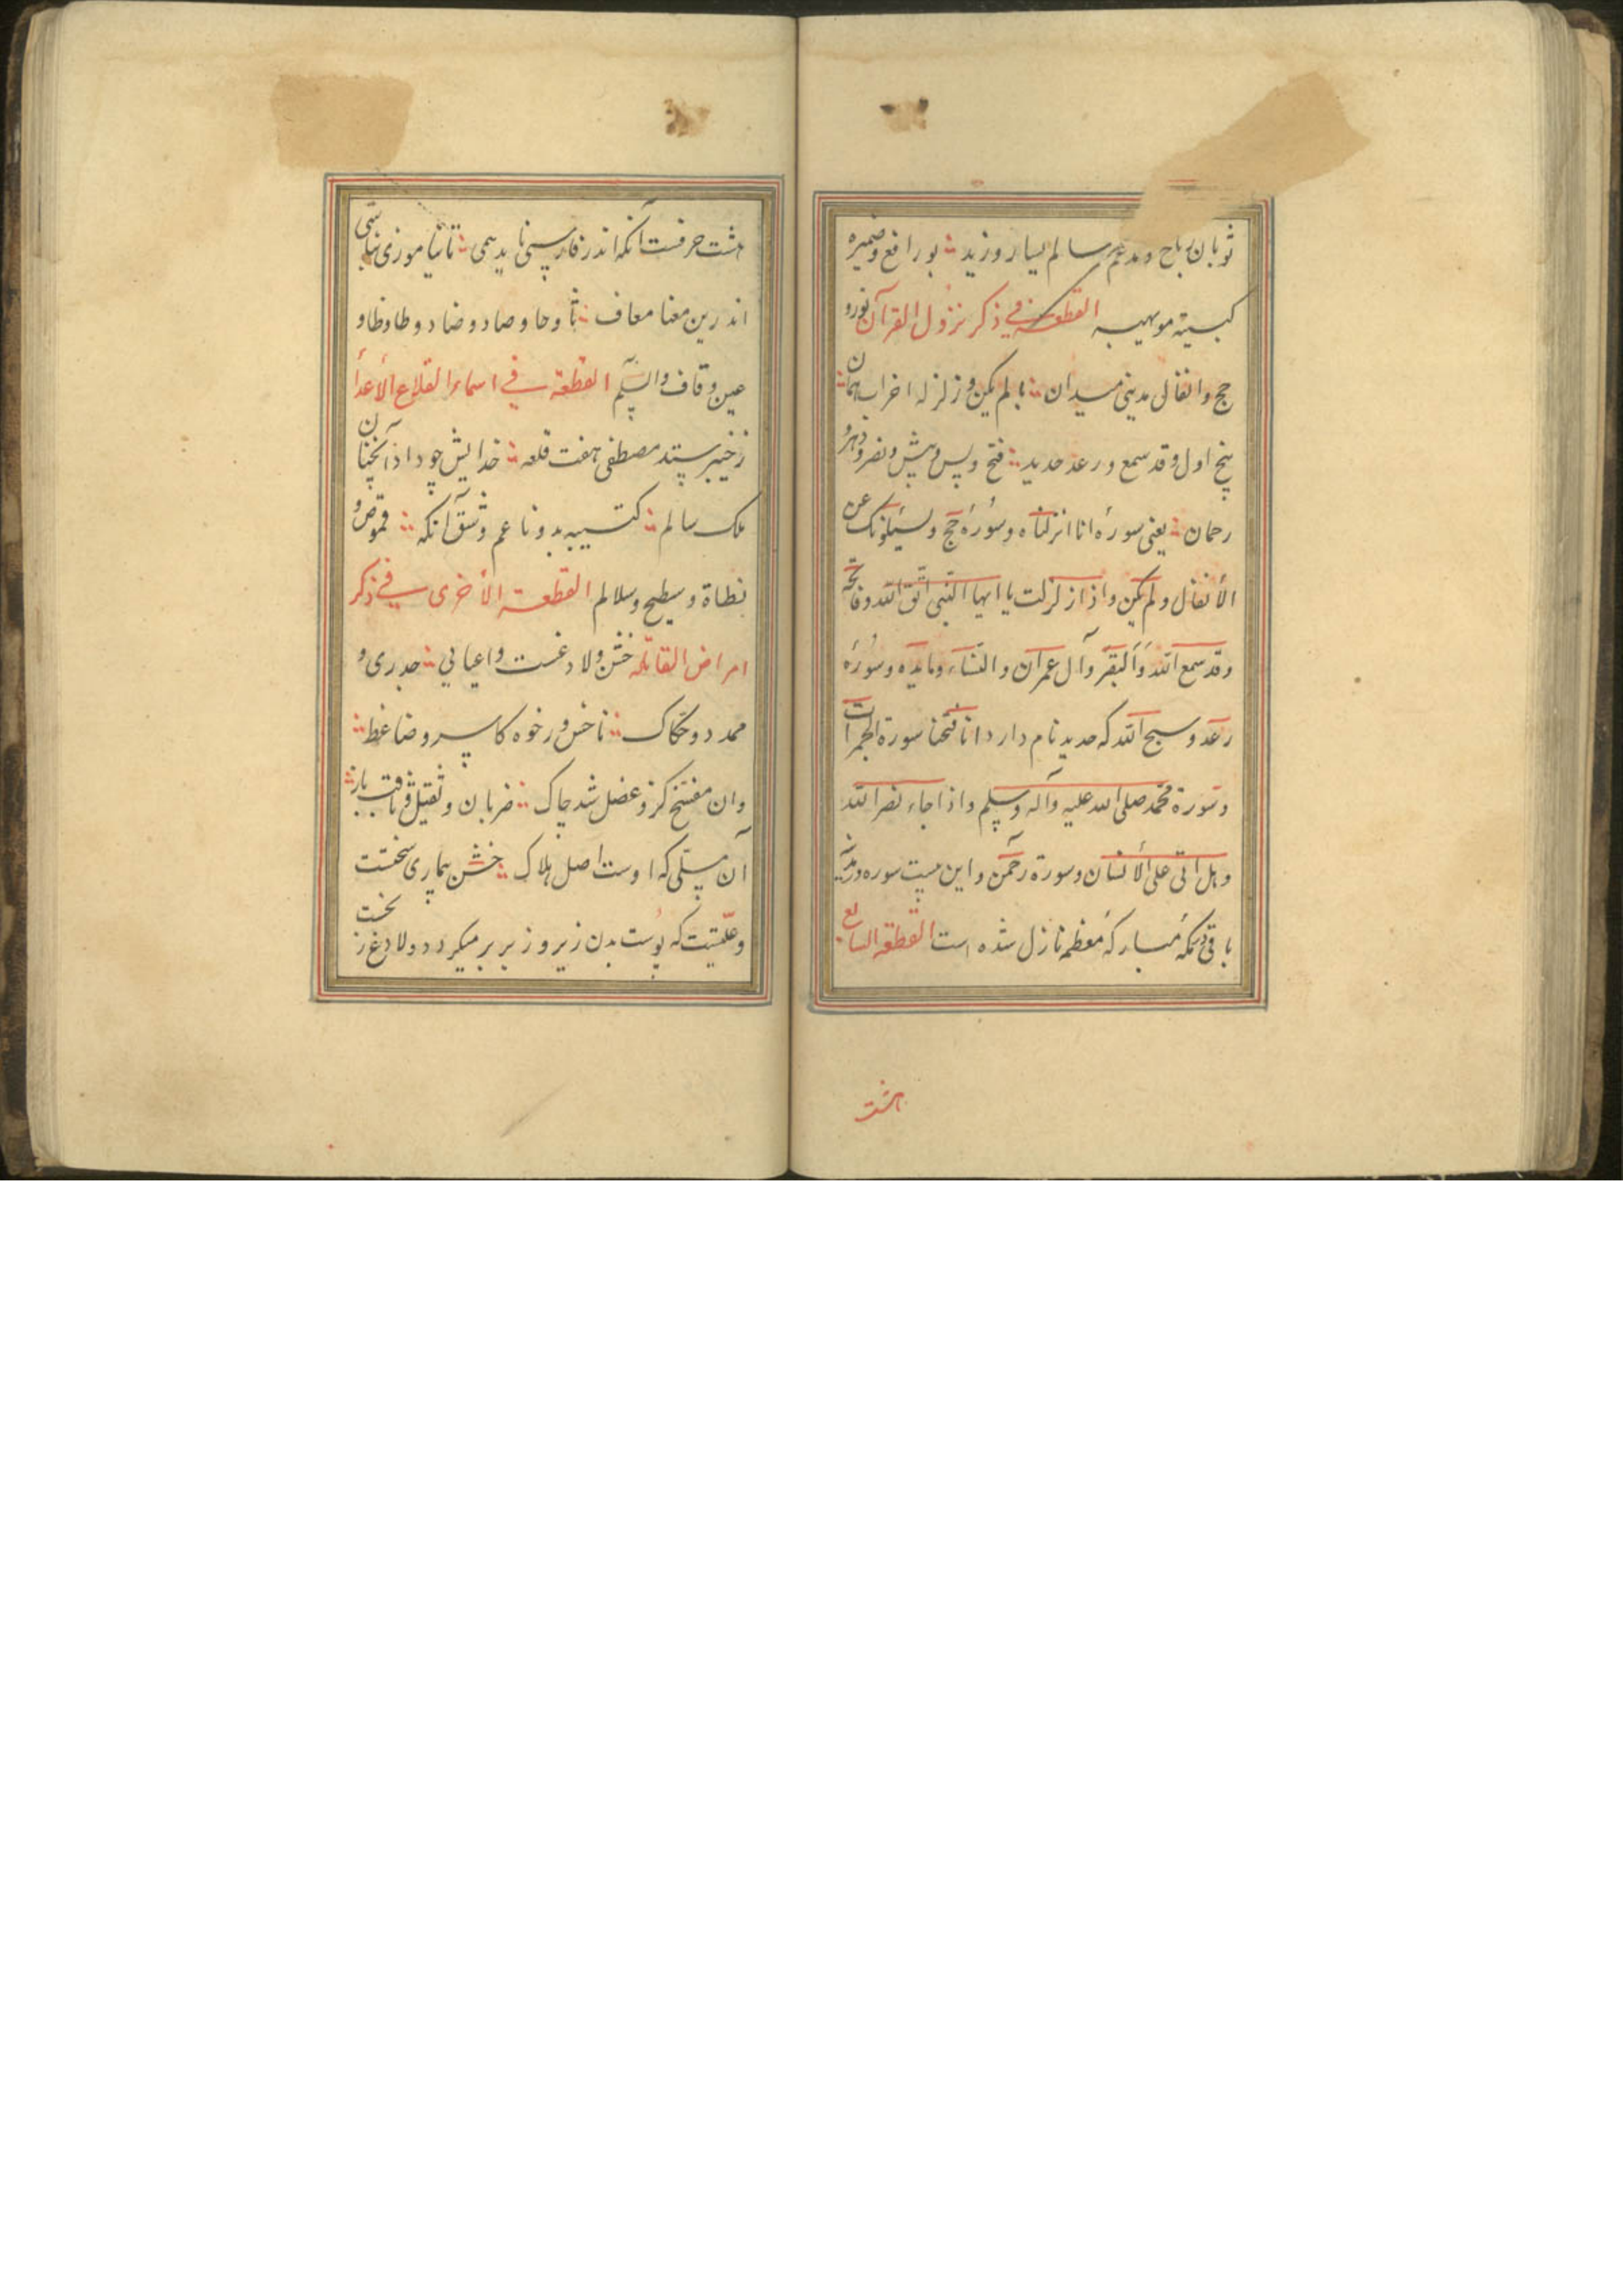 ثوبان رباح و مدغم سالم یسار و زید ؞ بو رافع و ضمیره
کبسیه مویهبه القطعة في ذکر نزول القرآن نور و
حج و انفال مدینی میدان ؞ با لم یکن و زلزله احزاب همان ؞
پنج اول و قد سمع و رعد حدید ؞ فتح و پس و پیش و نصر و دهر و
رحمان ؞ یعنی سورهٔ انا انزلناه و سورهٔ حج و یسئلونک عن
الأنفال و لم یکن و اذا زلزلت یا ایها النبی اتق الله و فاتحه
و قد سمع الله و البقر و آل عمران و النساء و مایده و سورهٔ
رعد و سبح الله که حدید نام دارد انا فتحنا سورة الحجرات
و سورة محمد صلی الله علیه و آله و سلم و اذا جاء نصر الله
و هل اتی علی الأنسان و سورة رحمن و این بیست سوره در مدینه
باقی در مکهٔ مبارکهٔ معظمه نازل شده است القطعة السابع ؞
هشت
هشت حرفست آنکه اندر فارسی ناید همی ؞ تا نیاموزی نباشی
اندرین معنا معاف ؞ ثا و حا و صاد و ضاد و طا و ظا و
عین و قاف والسلم القطعة في اسماء القلاع الأعدأ
ز خیبر ستد مصطفی هفت قلعه ؞ خدایش چو داد آنچنان
ملک سالم ؞ کتیبه بد و ناعم و شق آنکه ؞ قموص و
نطاة و سطیح و سلالم القطعة الأخری في ذکر
امراض القاتله خشن و لادغست و اعیایی ؞ جدری و
ممدد و حکاک ؞ ناخس و رخوه کاسر و ضاغط ؞
وان مفتح کزو عضل شد چاک ؞ ضربان و ثقیل و ثاقب باز ؞
آن مسلی که اوست اصل هلاک ؞ خشن بیماری سختست
و علتیست که پوست بدن زیر و زبر بر میگردد و لادغ زخت